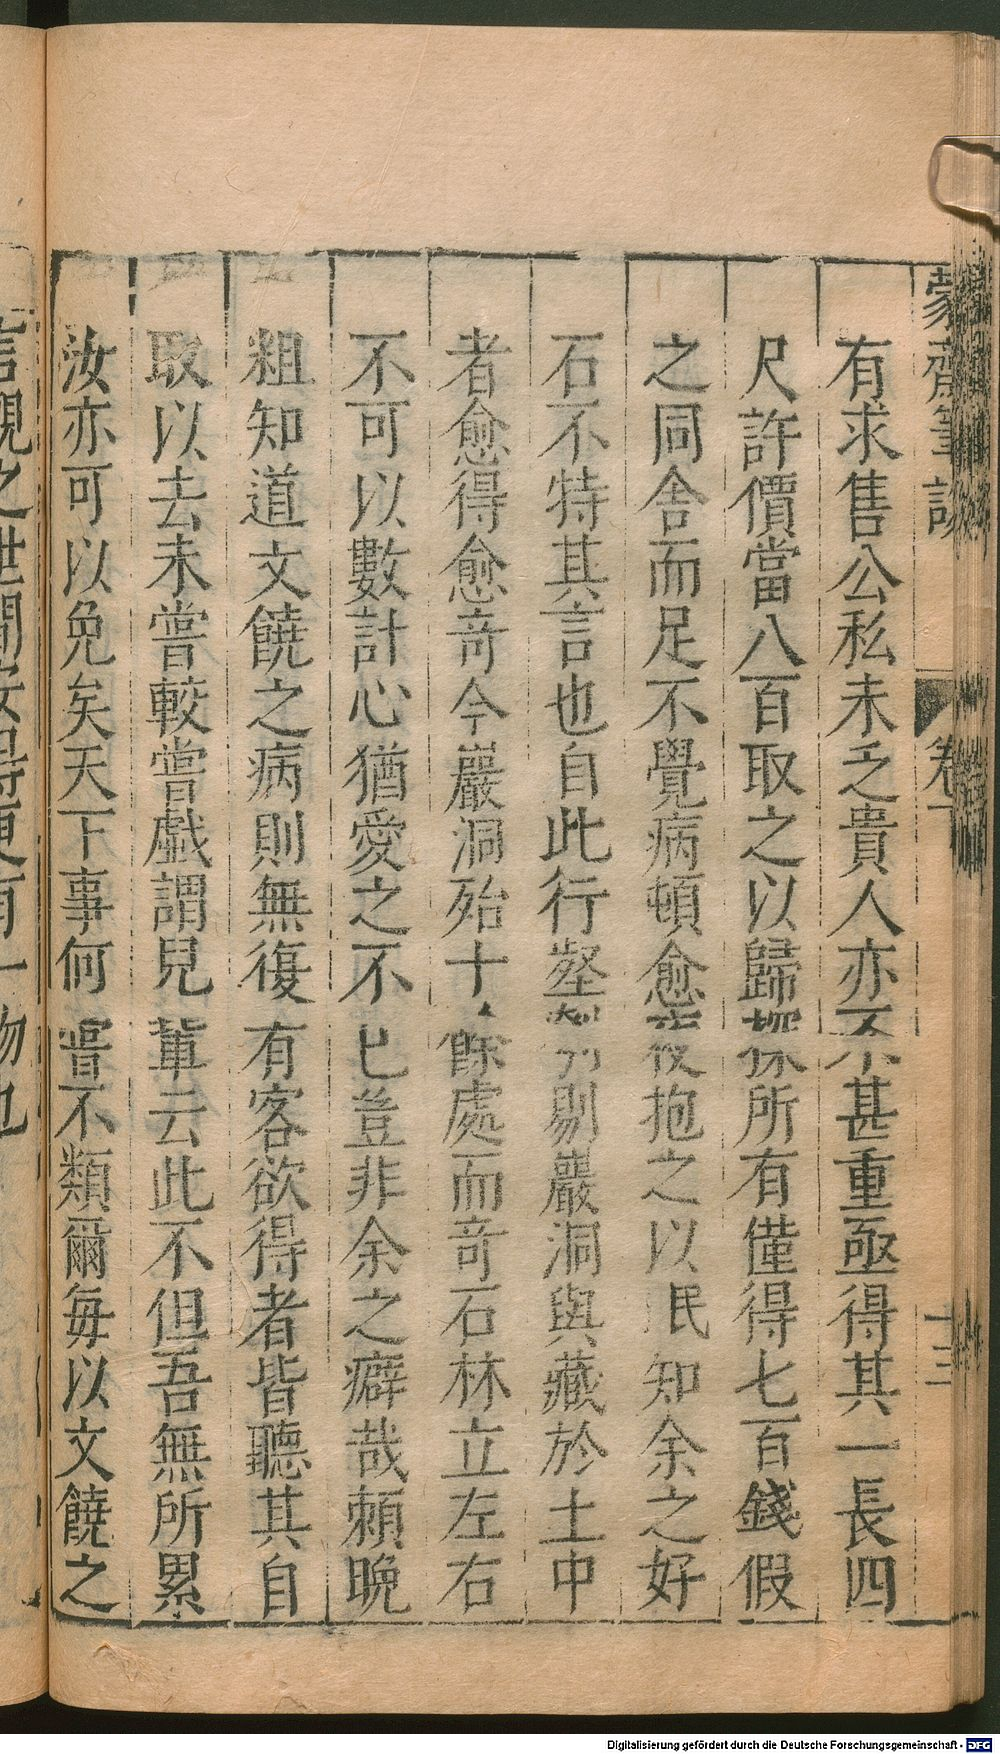 蒙齋筆談
卷下
十三
有求售公私未乏貴人亦不甚重亟得其一長四
尺許價當八百取之以歸探所有僅得七百錢假
之同舍而足不覺病頓愈夜抱之以眠知余之好
石不特其言也自此行壑剔巖洞與藏於土中
者愈得愈奇今巖洞殆十餘處而奇石林立左右
不可以數計心猶愛之不已豈非余之癖哉賴晚
粗知道文饒之病則無復有客欲得者皆聽其自
取以去未嘗較嘗戲謂兒輩云此不但吾無所累
汝亦可以免矣天下事何嘗不類爾每以文饒之
言觀之世間安得更有一物也
Digitalisierung gefördert durch die Deutsche Forschungsgemeinschaft - DFG